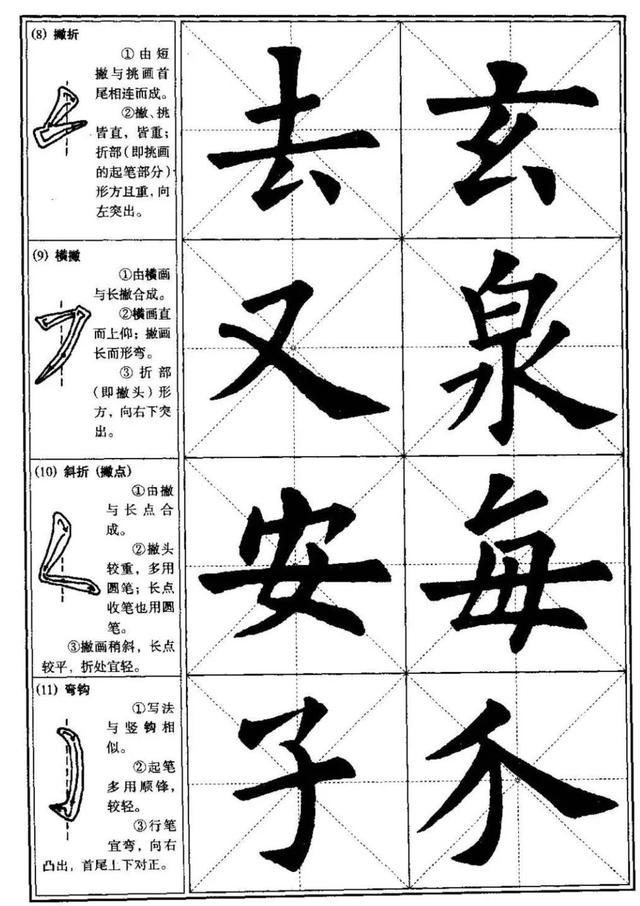 (8) 撇折
①由短
撇与挑画首
尾相连而成。
②撇、挑
皆直，皆重；
折部（即挑画
的起笔部分）
形方且重，向
左突出。
去 玄
(9) 横撇
①由横画
与长撇合成。
②横画直
而上仰；撇画
长而形弯。
③折部
（即撇头）形
方，向右下突
出。
又 泉
(10) 斜折（撇点）
①由撇
与长点合
成。
②撇头
较重，多用
圆笔；长点
收笔也用圆
笔。
③撇画稍斜，长点
较平，折处宜轻。
安 每
(11) 弯钩
①写法
与竖钩相
似。
②起笔
多用顺锋，
较轻。
③行笔
宜弯，向右
凸出，首尾上下对正。
子